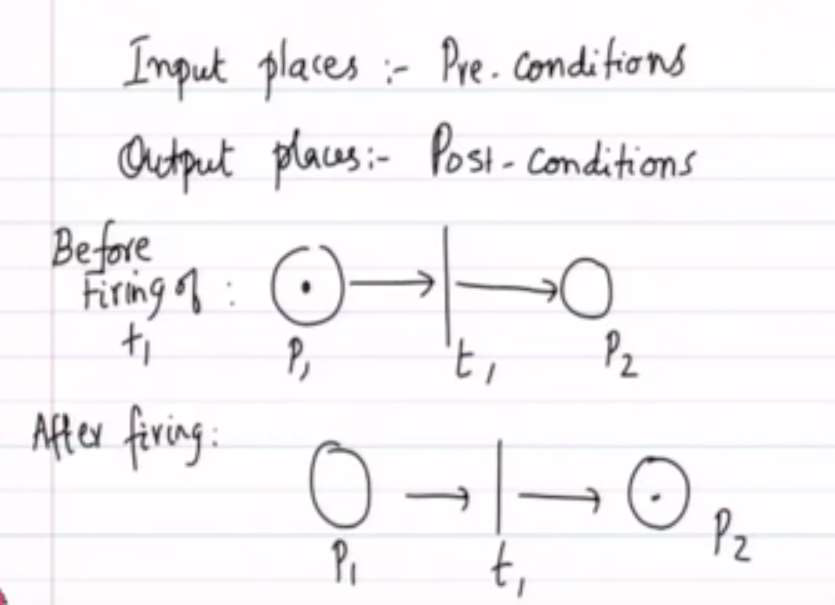 Input places :- Pre-conditions
Output places:- Post-conditions
Before
Firing of :
t1
P1
t1
P2
After firing:
P1
t1
P2